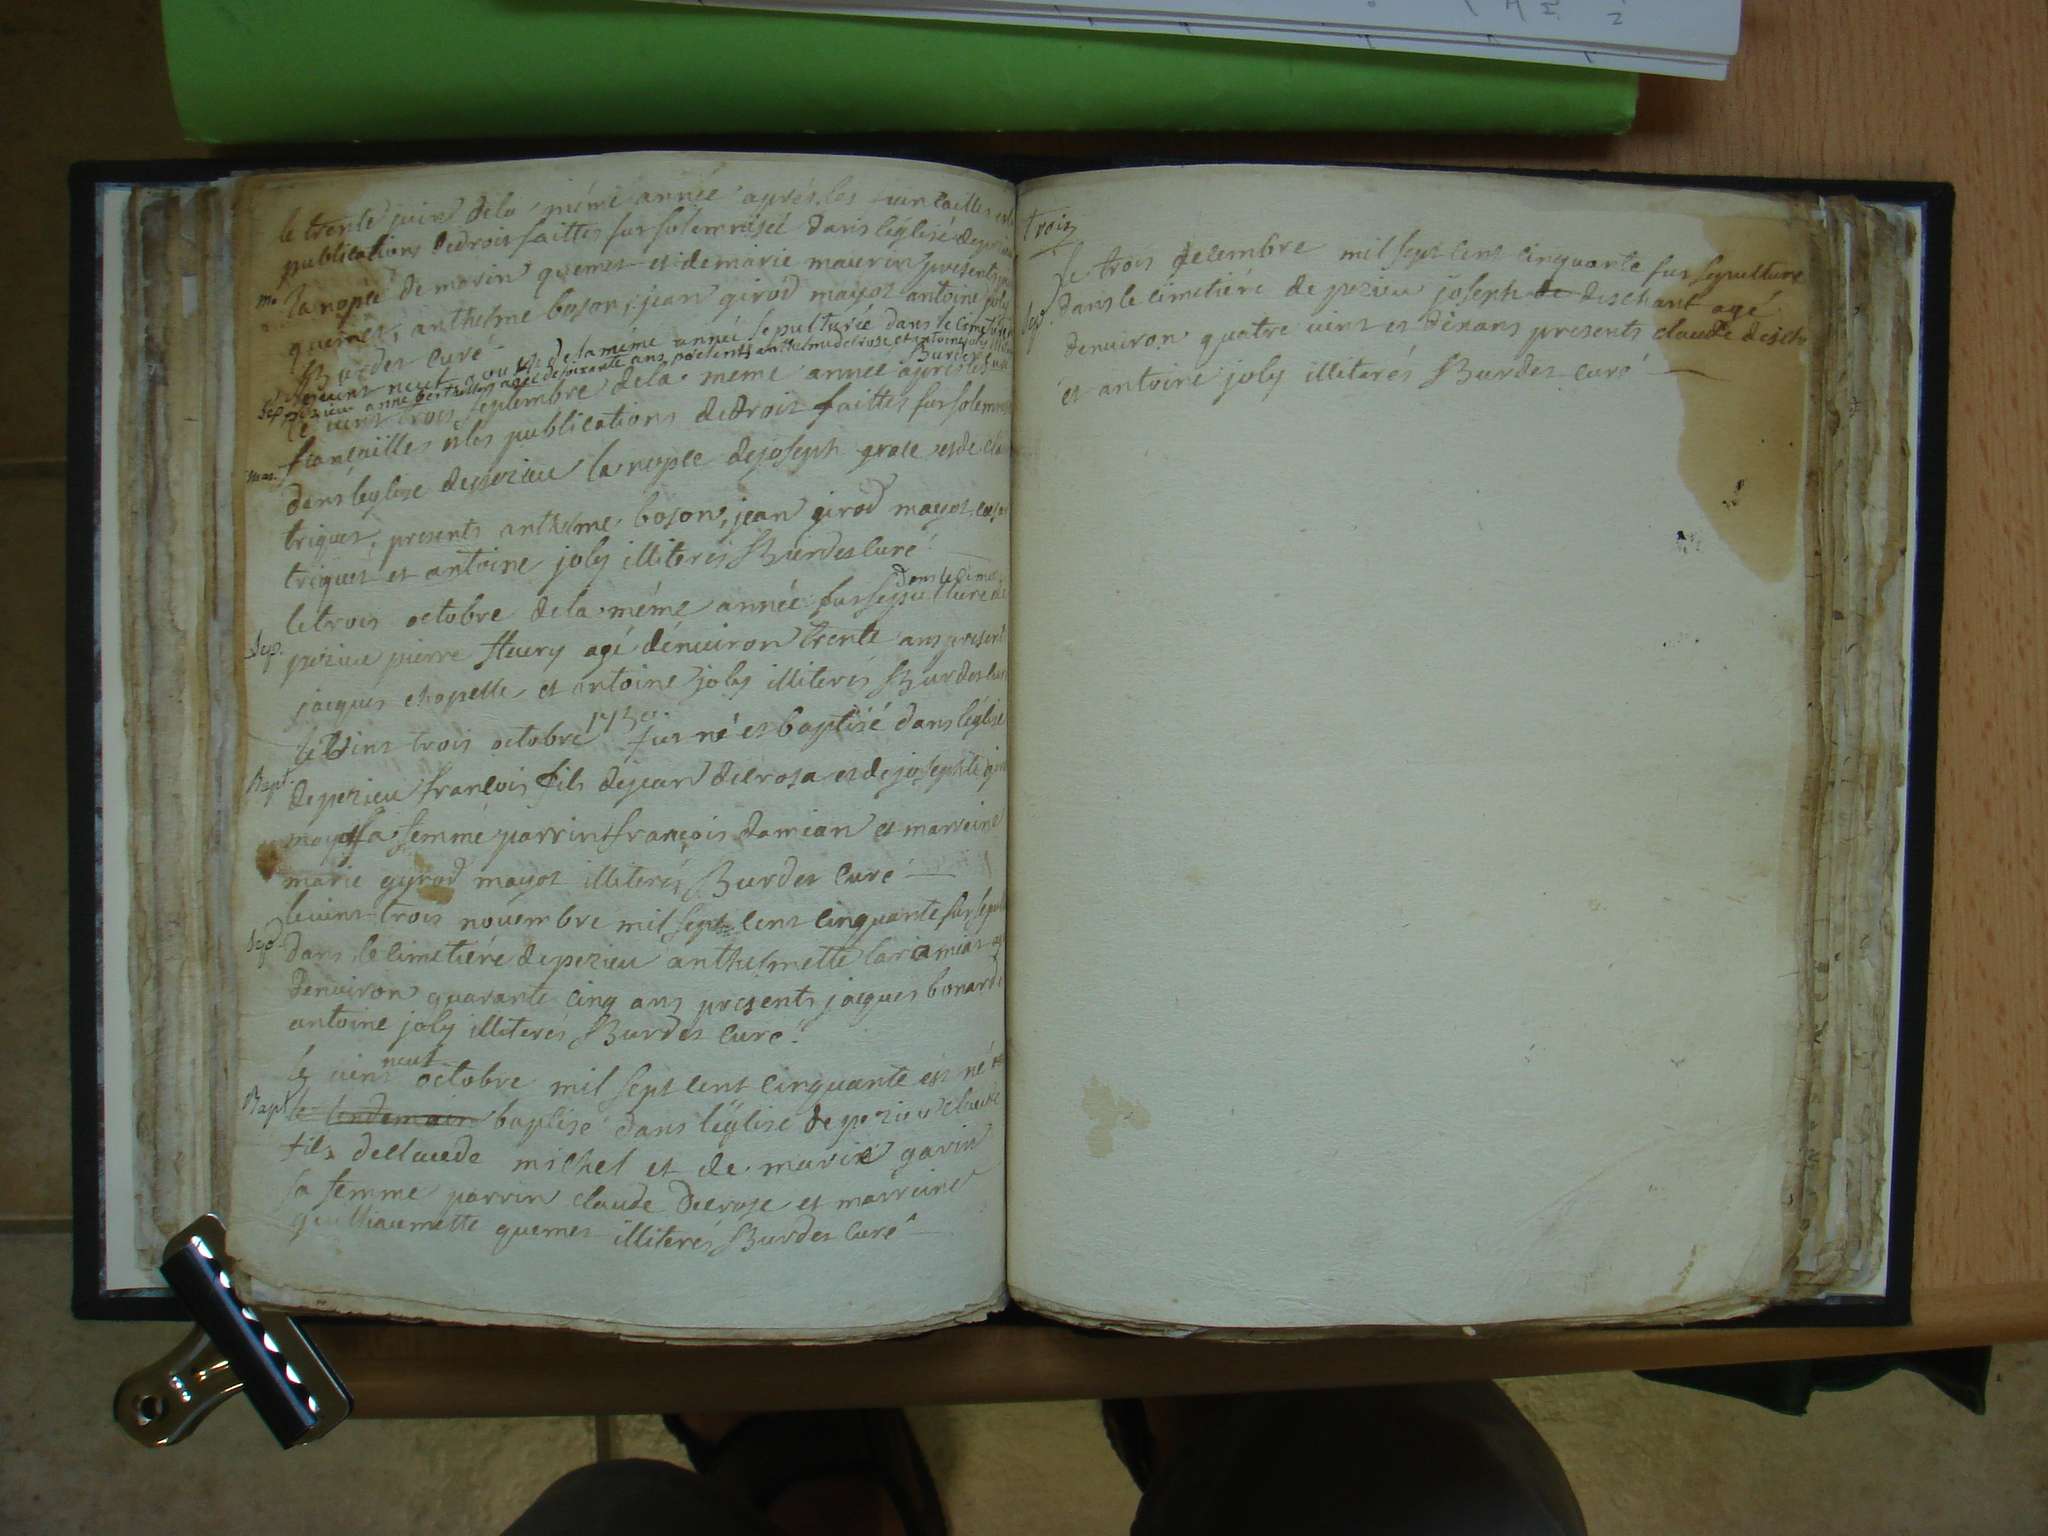 le trente juin dela méme année aprés les fiancailles et les
publications dedroit faittes fut solemnisée dans léglise depezieu
ma. la nopce de morin quemet et de marie maurin presents
quemet, anthelme boson, jean girod mayot antoine joly
Burdet curé
le vint neuf aout de la méme année sepulturée dans le cimetiere
Sep. pezieu anne berthellon agée de soixante ans présents anthelme delrose et antoine joly
Burdet curé
le vint trois septembre dela meme année aprés les
fiancailles et les publications dedroit faittes fut solemnisée
mar. dans léglise depezieu la nopce dejoseph grose et de cla
triquet, presents anthelme boson, jean girod mayot,
triquet et antoine joly illiterés Burdet curé
dans le cimet.
le trois octobre de la méme année fut sepulturé de
Sep. pezieu pierre fleury agé dénuiron trente ans present
jacques chapelle et antoine joly illiterés Burdet curé
le vint trois octobre 1750. fut né et baptisé dans léglise
Bapt. depezieu francois fils dejean delrosa et dejosephte gir
mayot sa femme parrint françois damian et marreine
marie gyrod mayot illiterés Burdet curé
le vint trois nouembre mil sept cent cinquante fut sepul
Sep. dans le cimetiére depezieu anthelmette lariamiat
denuiron quarante cinq ans presents jacques bonard
antoine joly illiterés Burdet curé
le vint neuf octobre mil sept cent cinquante est né et
Bapt. le lendemain baptisé dans léglise de pezieu claude
fils declaude michel et de marie gavin
sa femme parrin claude delrose et marreine
guilliaumette quemet illiterés Burdet curé
trois
le trois decembre mil sept cent cinquante fut sepulturé
Sep. dans le cimetiére de pezieu joseph de deschant agé
denuiron quatre vint et dix ans presents claude desch
et antoine joly illiterés Burdet curé